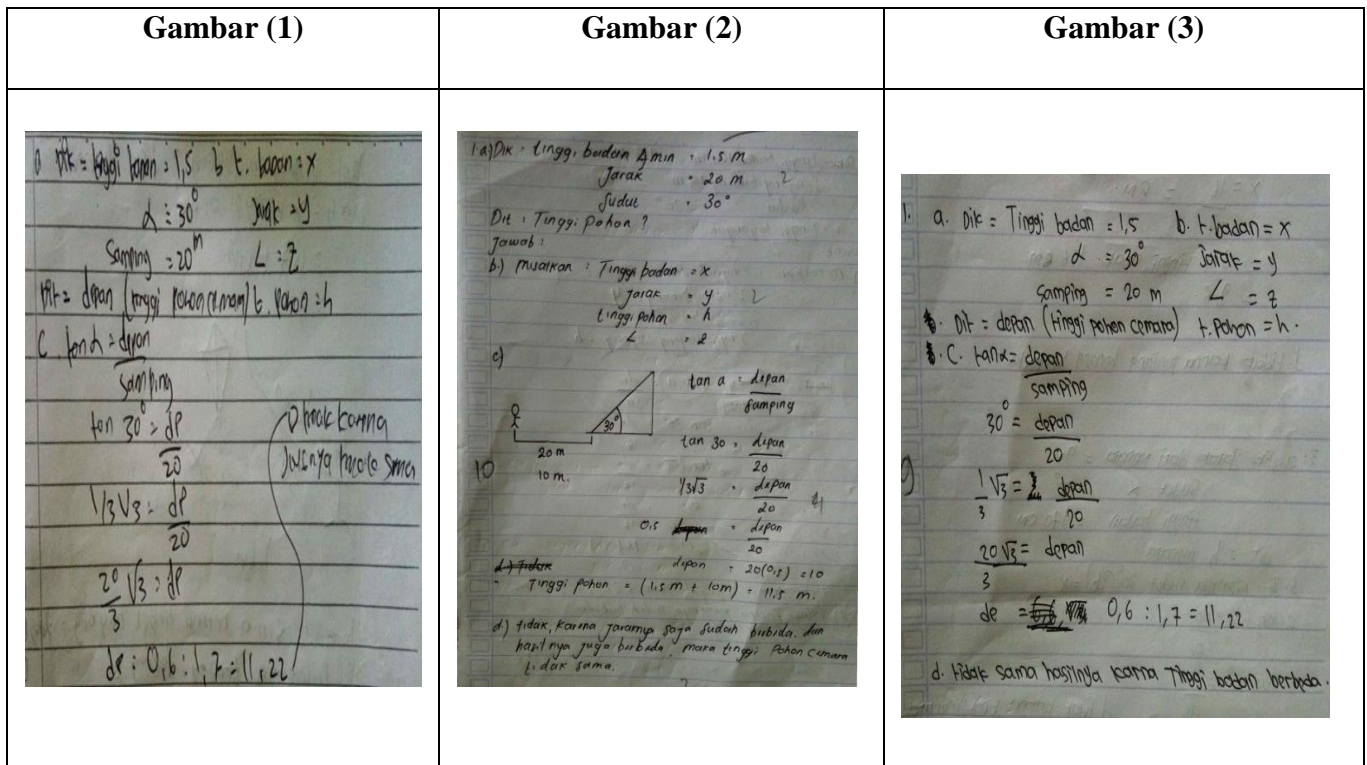 Gambar (1)
Gambar (2)
Gambar (3)
Dik = tinggi = 1,5 b t. badan = x
α = 30° Jarak = y
Samping = 20 m ∠ : z
Dit = depan (tinggi pohon t. pohon = h
C. tan α = depan
samping
tan 30° = dp
20
1/3 √3 = dp
20
20 √3 = dp
3
de : 0,6 : 1,7 = 11,22
D tidak karna
tidak sama
1.a) Dik : tinggi badan Amin = 1.5 m
Jarak = 20 m 2
Sudut = 30°
Dit : Tinggi pohon ?
Jawab :
b.) misalkan : Tinggi badan = x
Jarak = y 2
tinggi pohon = h
∠ = z
c)
30°
20 m
10 m.
10
tan a = depan
samping
tan 30 = depan
20
1/3√3 = depan
20
0,5 = depan
20
depan = 20(0,5) = 10
Tinggi pohon = (1.5 m + 10m) = 11.5 m.
d.) tidak, karena jaraknya saja sudah berbeda. dan
hasilnya juga berbeda, maka tinggi pohon cemara
tidak sama.
1. a. Dik = Tinggi badan = 1,5 b. t.badan = x
α = 30° Jarak = y
Samping = 20 m ∠ = z
Dit = depan (tinggi pohon cemara) t. pohon = h.
C. tanα = depan
samping
30° = depan
20
9
1 √3 = depan
3 20
20 √3 = depan
3
de = 0,6 : 1,7 = 11,22
d. tidak sama hasilnya karna Tinggi badan berbeda.